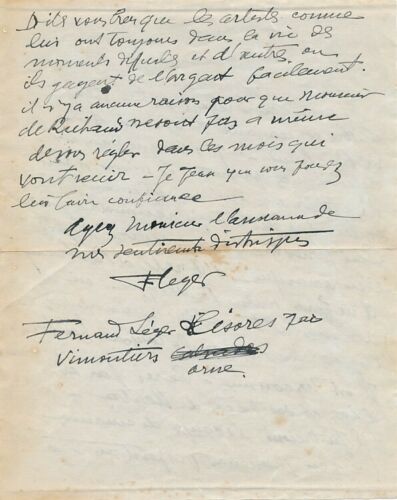 Dites vous bien que les artistes comme
lui ont toujours dans la vie des
moments difficiles et d'autres ou
ils gagent de l'argent facilement.
il n'y a aucune raison pour que Monsieur
de ne soit pas a meme
de vous régler dans les mois qui
vont venir – Je pense que vous pouvez
lui faire confiance
Ayez Monsieur l'assurance de
mes sentiments distingués
FLeger
Fernand Léger Lisores par
Vimoutiers
orne.